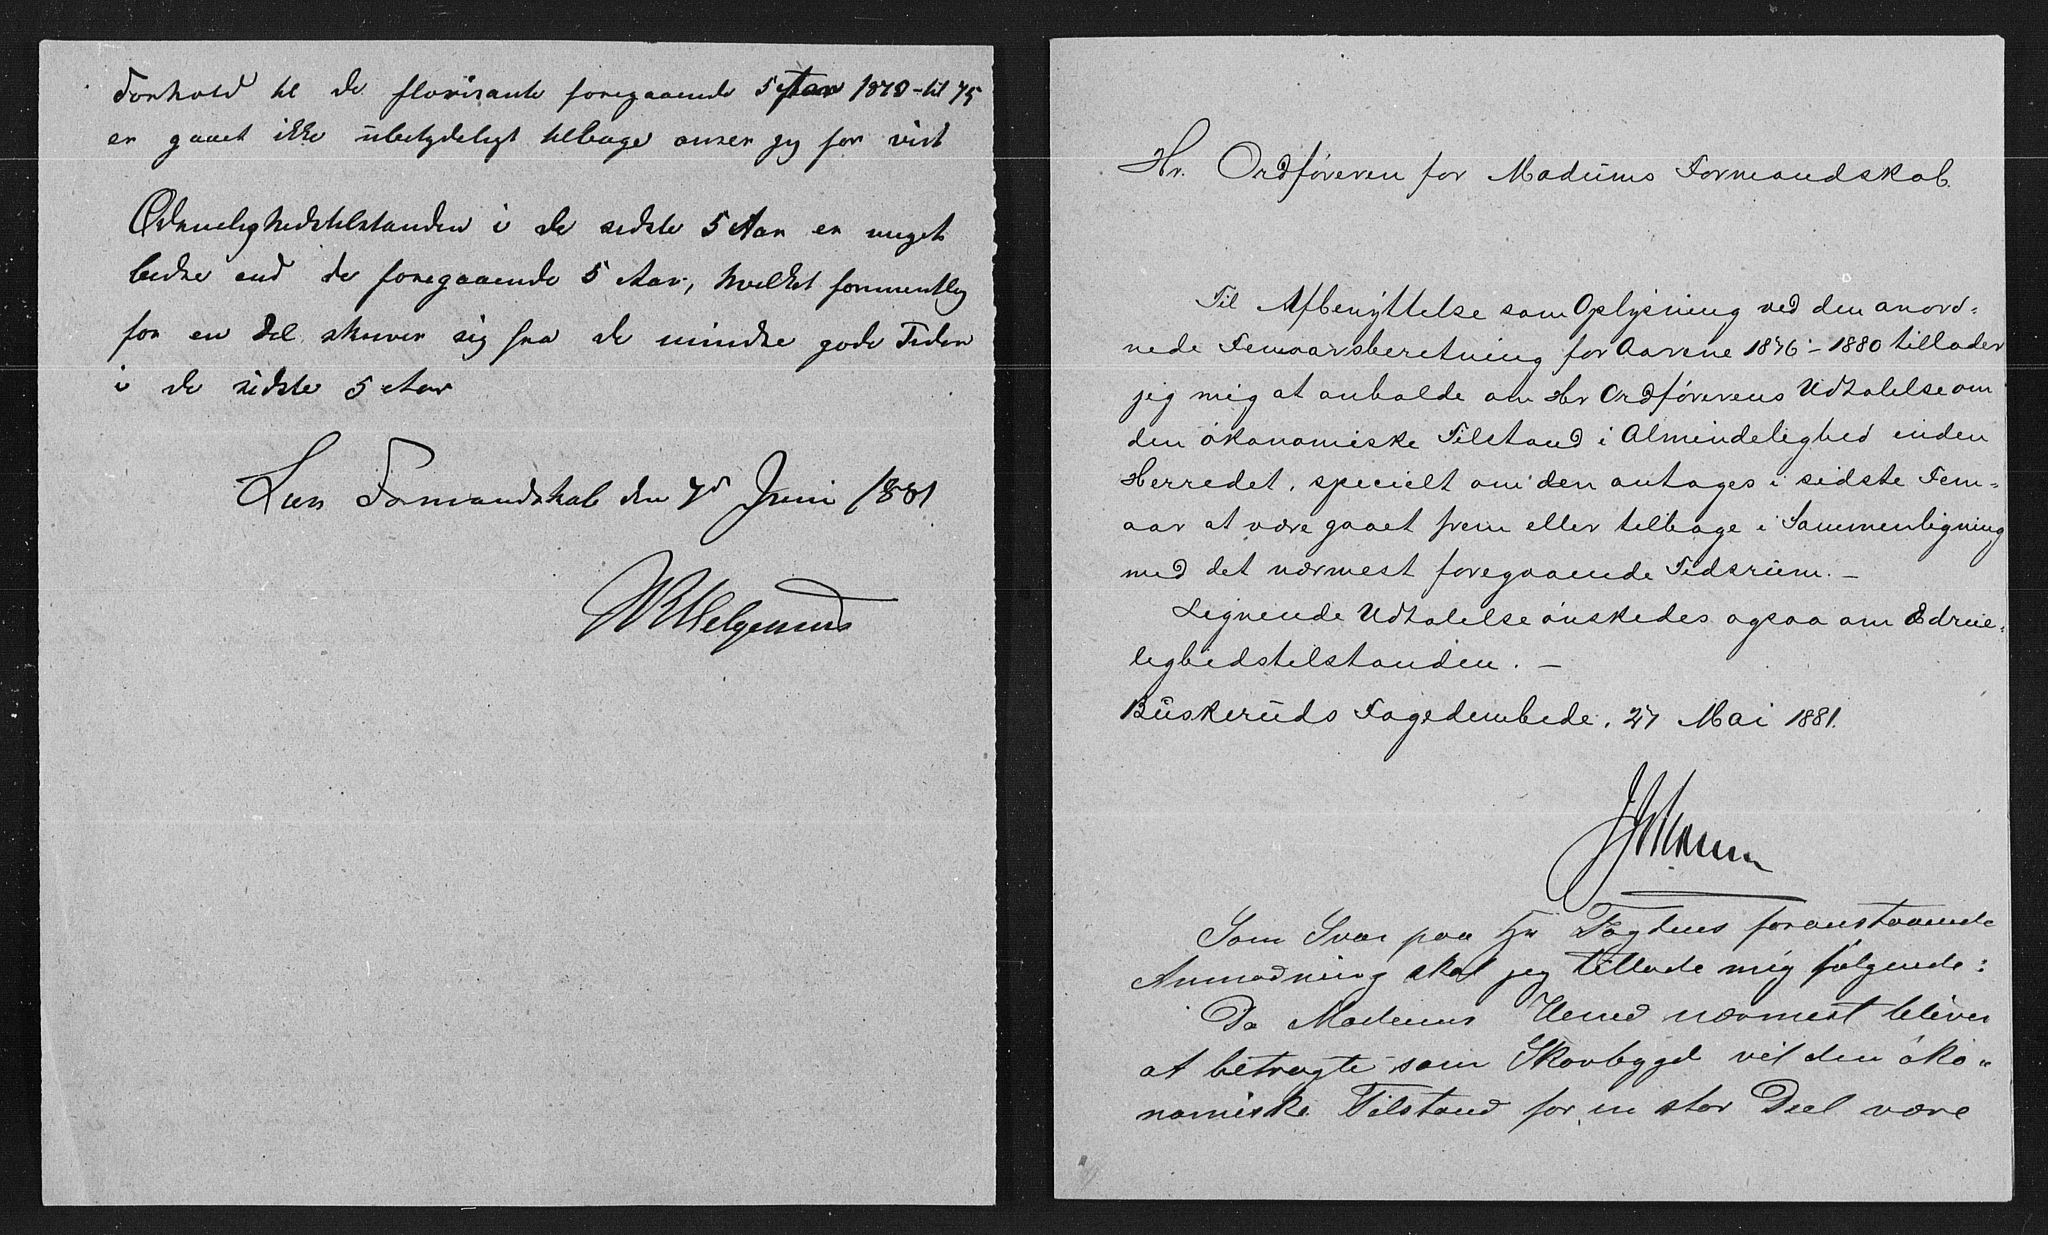 Forhold til de florisante foregaaende 5 Aar 1870-til 75
er gaaet ikke ubetydeligt tilbage anser jeg for vist
Ædruelighedstilstanden i de sidste 5 Aar er meget
bedre end de foregaaende 5 Aar, hvilket formentlig
for en Del skriver sig fra de mindre gode Tider
i de sidste 5 Aar
Lier Formandskab den 7d Juni 1881
Helgerud
Hr. Ordføreren for Modums Formandskab.
Til Afbenyttelse som Oplysning ved den anord-
nede Femaarsberetning for Aarene 1876 - 1880 tillader
jeg mig at anholde om Hr Ordførerens Udtalelse om
den økonomiske Tilstand i Almindelighed inden
Herredet, specielt om den antages i sidste Fem-
aar at være gaaet frem eller tilbage i Sammenligning
med det nærmest foregaaende Tidsrum. -
Lignende Udtalelse ønskedes ogsaa om Ædrue-
lighedstilstanden. -
Buskeruds Fogedembede, 27 Mai 1881.
Som Svar paa Hr Fogdens foranstaaende
Anmodning skal jeg tillade mig følgende:
Da Modums Herred nærmest bliver
at betragte som Skovbygd vil den øko-
nomiske Tilstand for en stor Deel være